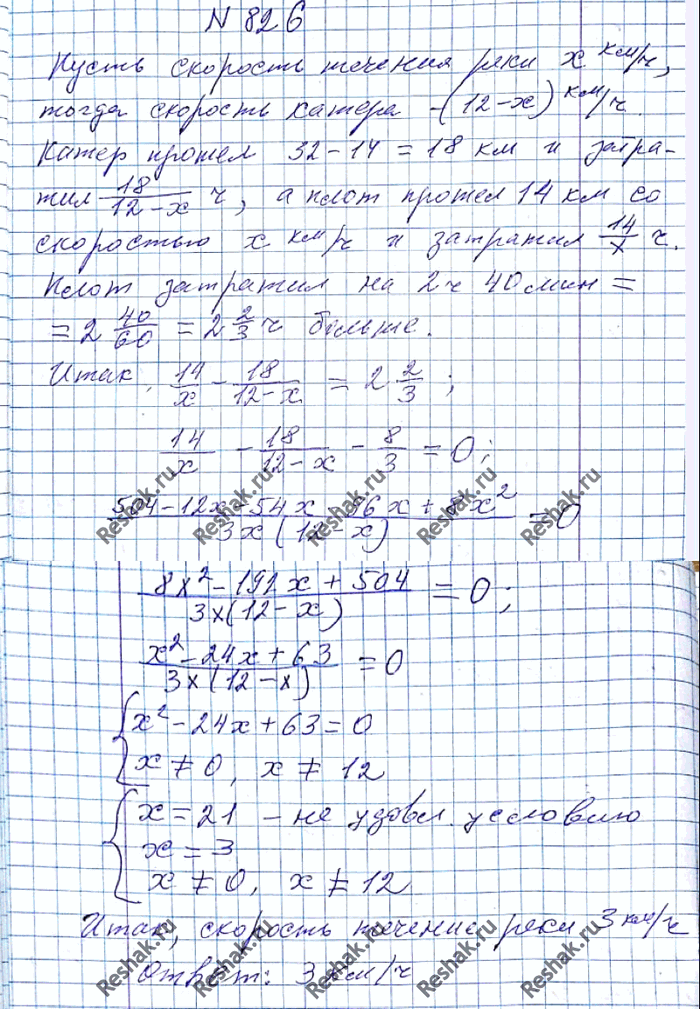 N 826
Пусть скорость течения реки x км/ч,
тогда скорость катера -(12-x) км/ч.
Катер прошел 32-14=18 км и затра-
тил 18/(12-x) ч, а плот прошел 14 км со
скоростью x км/ч и затратил 14/x ч.
Плот затратил на 2ч 40мин =
= 2 40/60 = 2 2/3 ч больше.
Итак, 14/x - 18/(12-x) = 2 2/3;
14/x - 18/(12-x) - 8/3 = 0;
(504-12x-54x-96x+8x²)/(3x(12-x)) = 0
(8x²-191x+504)/(3x(12-x)) = 0;
(x²-24x+63)/(3x(12-x)) = 0
{x²-24x+63=0
x≠0, x≠12
{x=21 - не удовл. условию
x=3
x≠0, x≠12
Итак, скорость течение реки 3 км/ч
Ответ: 3 км/ч
Reshak.ru Reshak.ru Reshak.ru Reshak.ru Reshak.ru
Reshak.ru Reshak.ru Reshak.ru Reshak.ru Reshak.ru